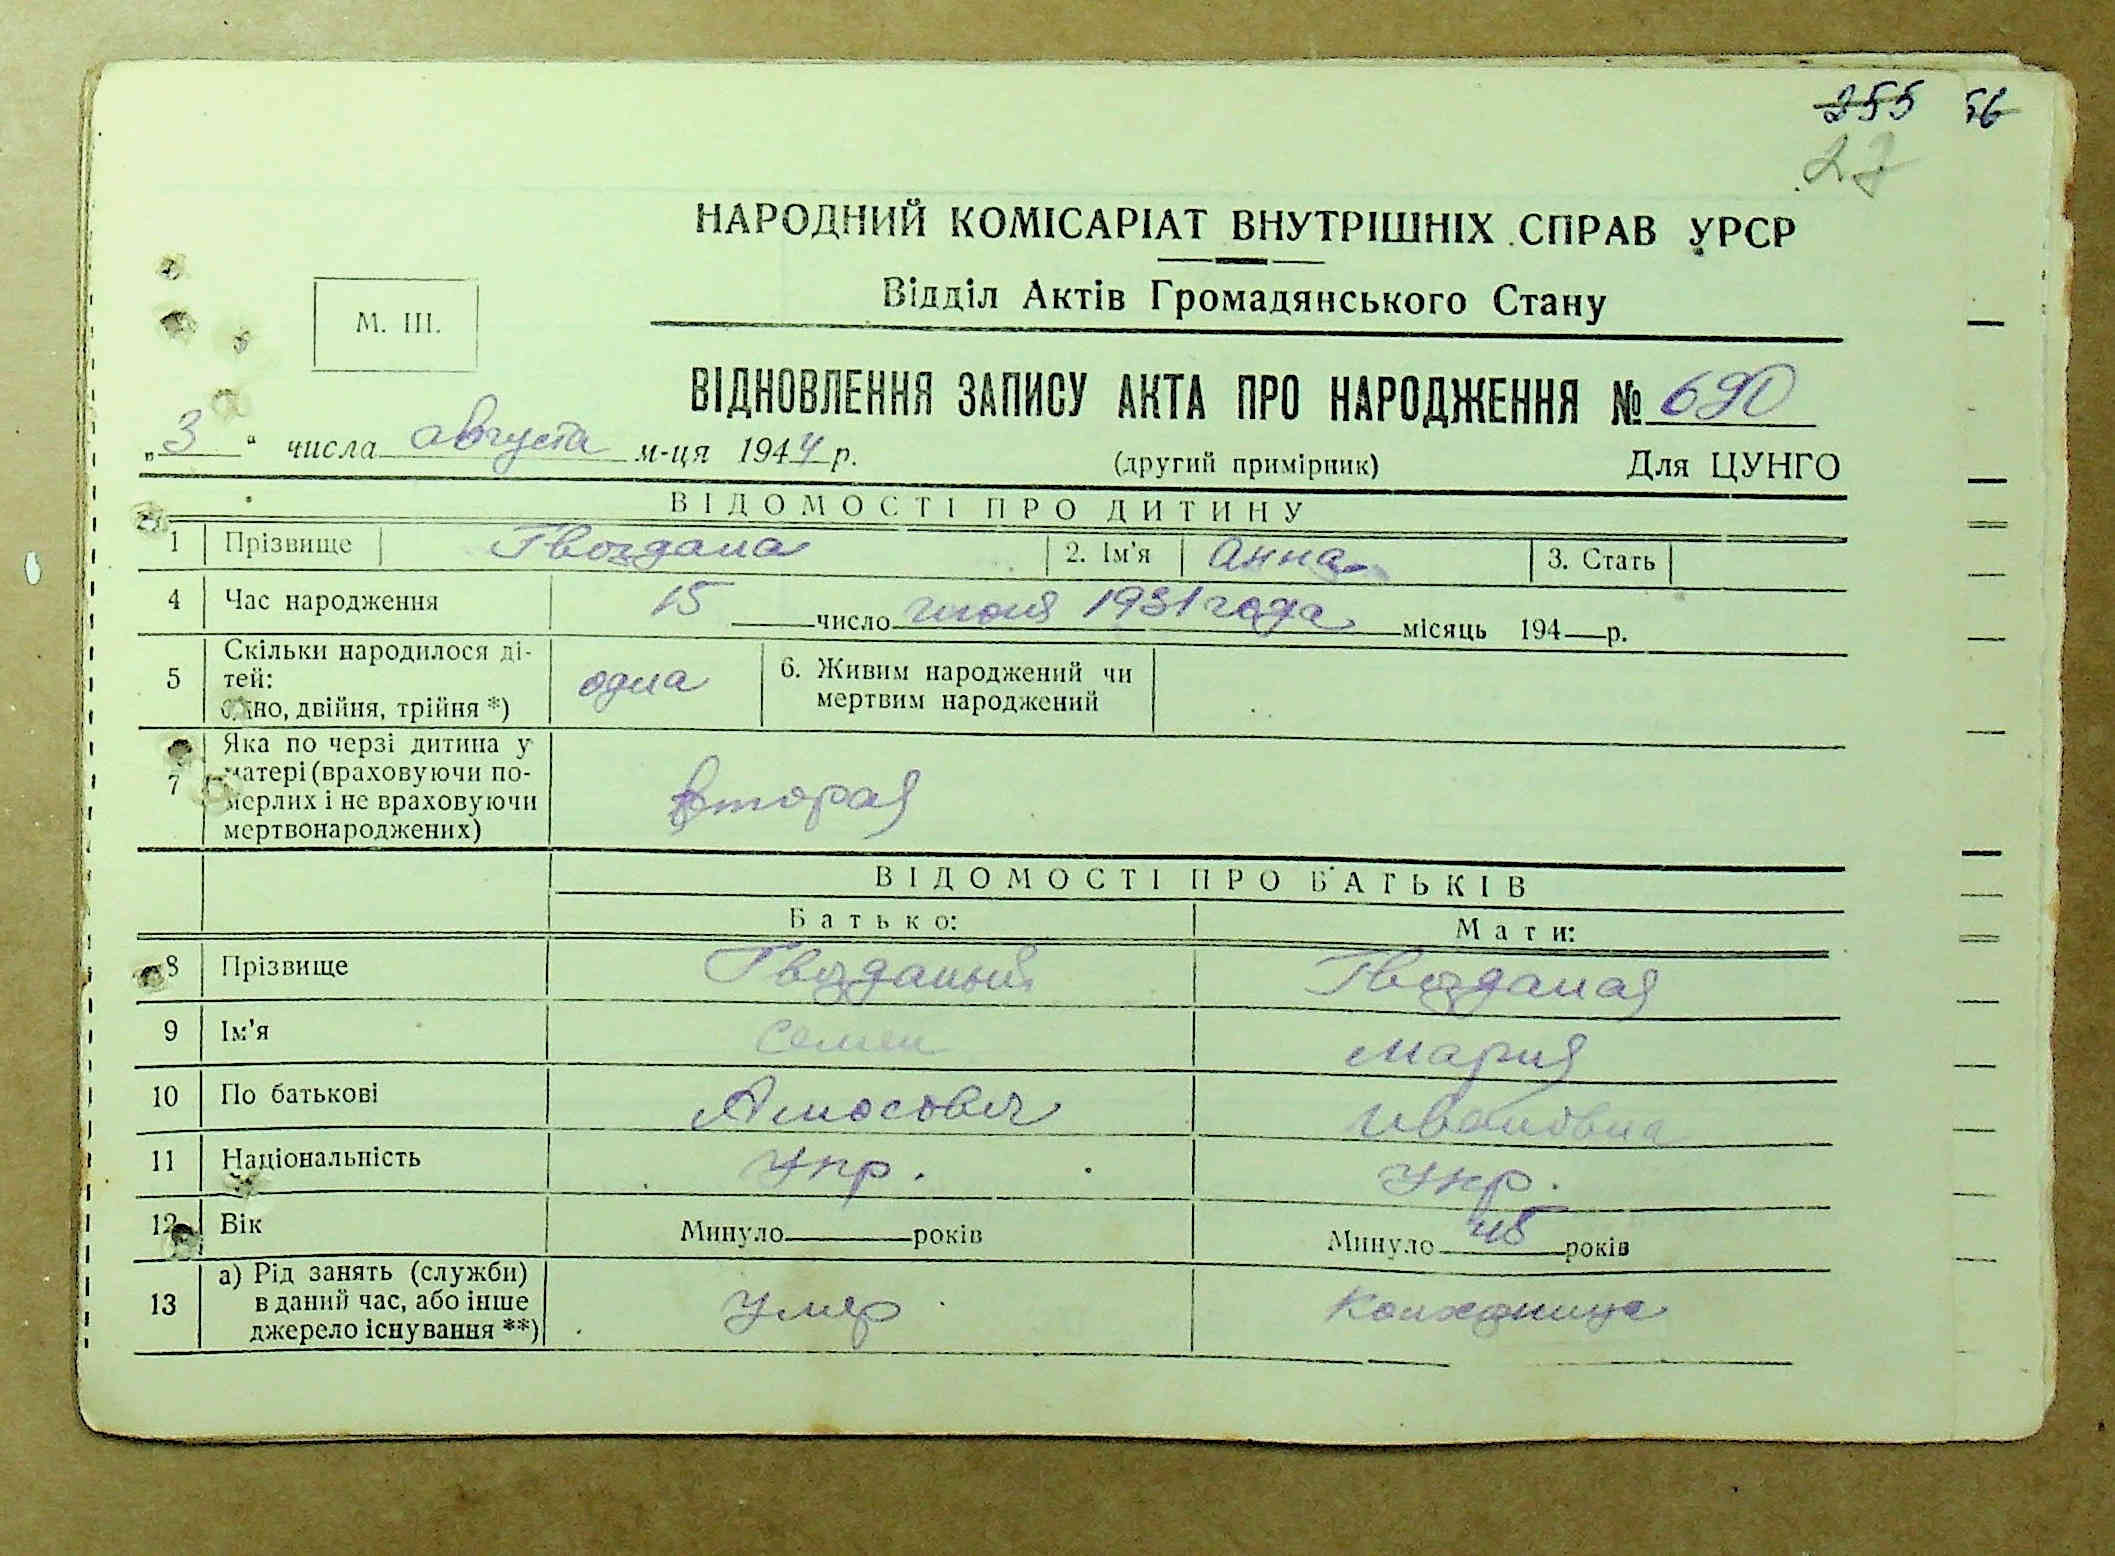 255 56
27
НАРОДНИЙ КОМІСАРІАТ ВНУТРІШНІХ СПРАВ УРСР
М. Ш.
Відділ Актів Громадянського Стану
ВІДНОВЛЕННЯ ЗАПИСУ АКТА ПРО НАРОДЖЕННЯ № 690
„3“ числа августа м-ця 1944 р. (другий примірник) Для ЦУНГО
ВІДОМОСТІ ПРО ДИТИНУ
1 Прізвище Гвоздана 2. Ім'я Анна 3. Стать
4 Час народження 15 число июня 1931 года місяць 194 р.
5 Скільки народилося ді-
тей:
одно, двійня, трійня *) одна 6. Живим народжений чи
мертвим народжений
7 Яка по черзі дитина у
матері (враховуючи по-
мерлих і не враховуючи
мертвонароджених) вторая
ВІДОМОСТІ ПРО БАТЬКІВ
Батько: Мати:
8 Прізвище Гвозданый Гвозданая
9 Ім'я Семен Мария
10 По батькові Амосович Ивановна
11 Національність Укр. Укр.
12 Вік Минуло років Минуло 45 років
13 а) Рід занять (служби)
в даний час, або інше
джерело існування **) Умер Колхозница